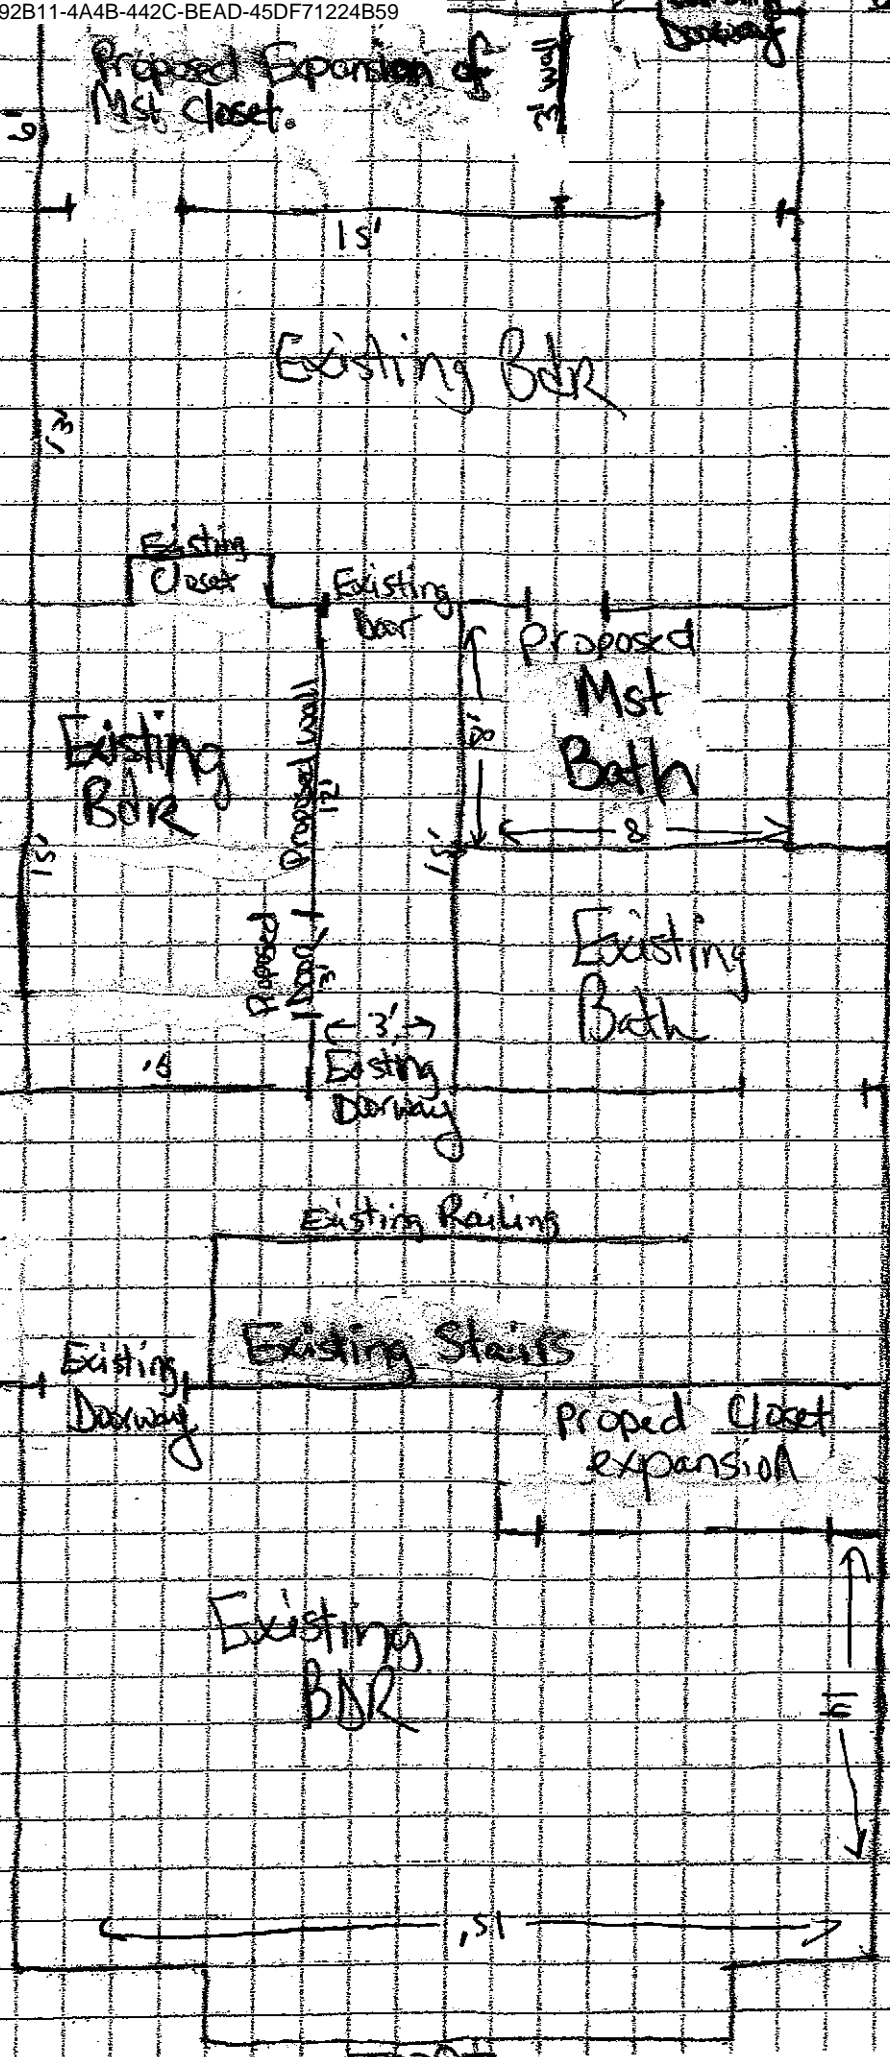 92B11-4A4B-442C-BEAD-45DF71224B59
Doorway
Proposed Expansion of
Mst Closet.
3' wall
6'
15'
Existing BdR
13'
Existing
Closet
Existing
Door
Proposed
Mst
Bath
8'
8
Existing
BdR
Proposed wall
12'
15'
15'
Proposed
Door
3'
Existing
Bath
3'
Existing
Doorway
Existing Railing
Existing Stairs
Existing
Doorway
Proped Closet
expansion
Existing
BDR
15'